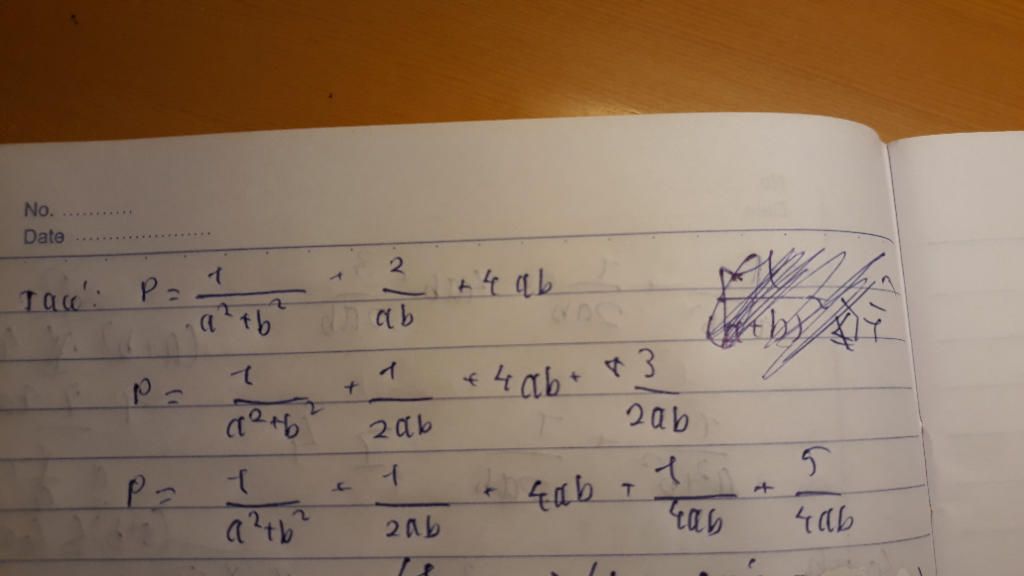 No. ...........
Date .....................
Ta có: P = 1/(a²+b²) + 2/(ab) + 4ab
P = 1/(a²+b²) + 1/(2ab) + 4ab + + 3/(2ab)
P = 1/(a²+b²) + 1/(2ab) + 4ab + 1/(4ab) + 5/(4ab)